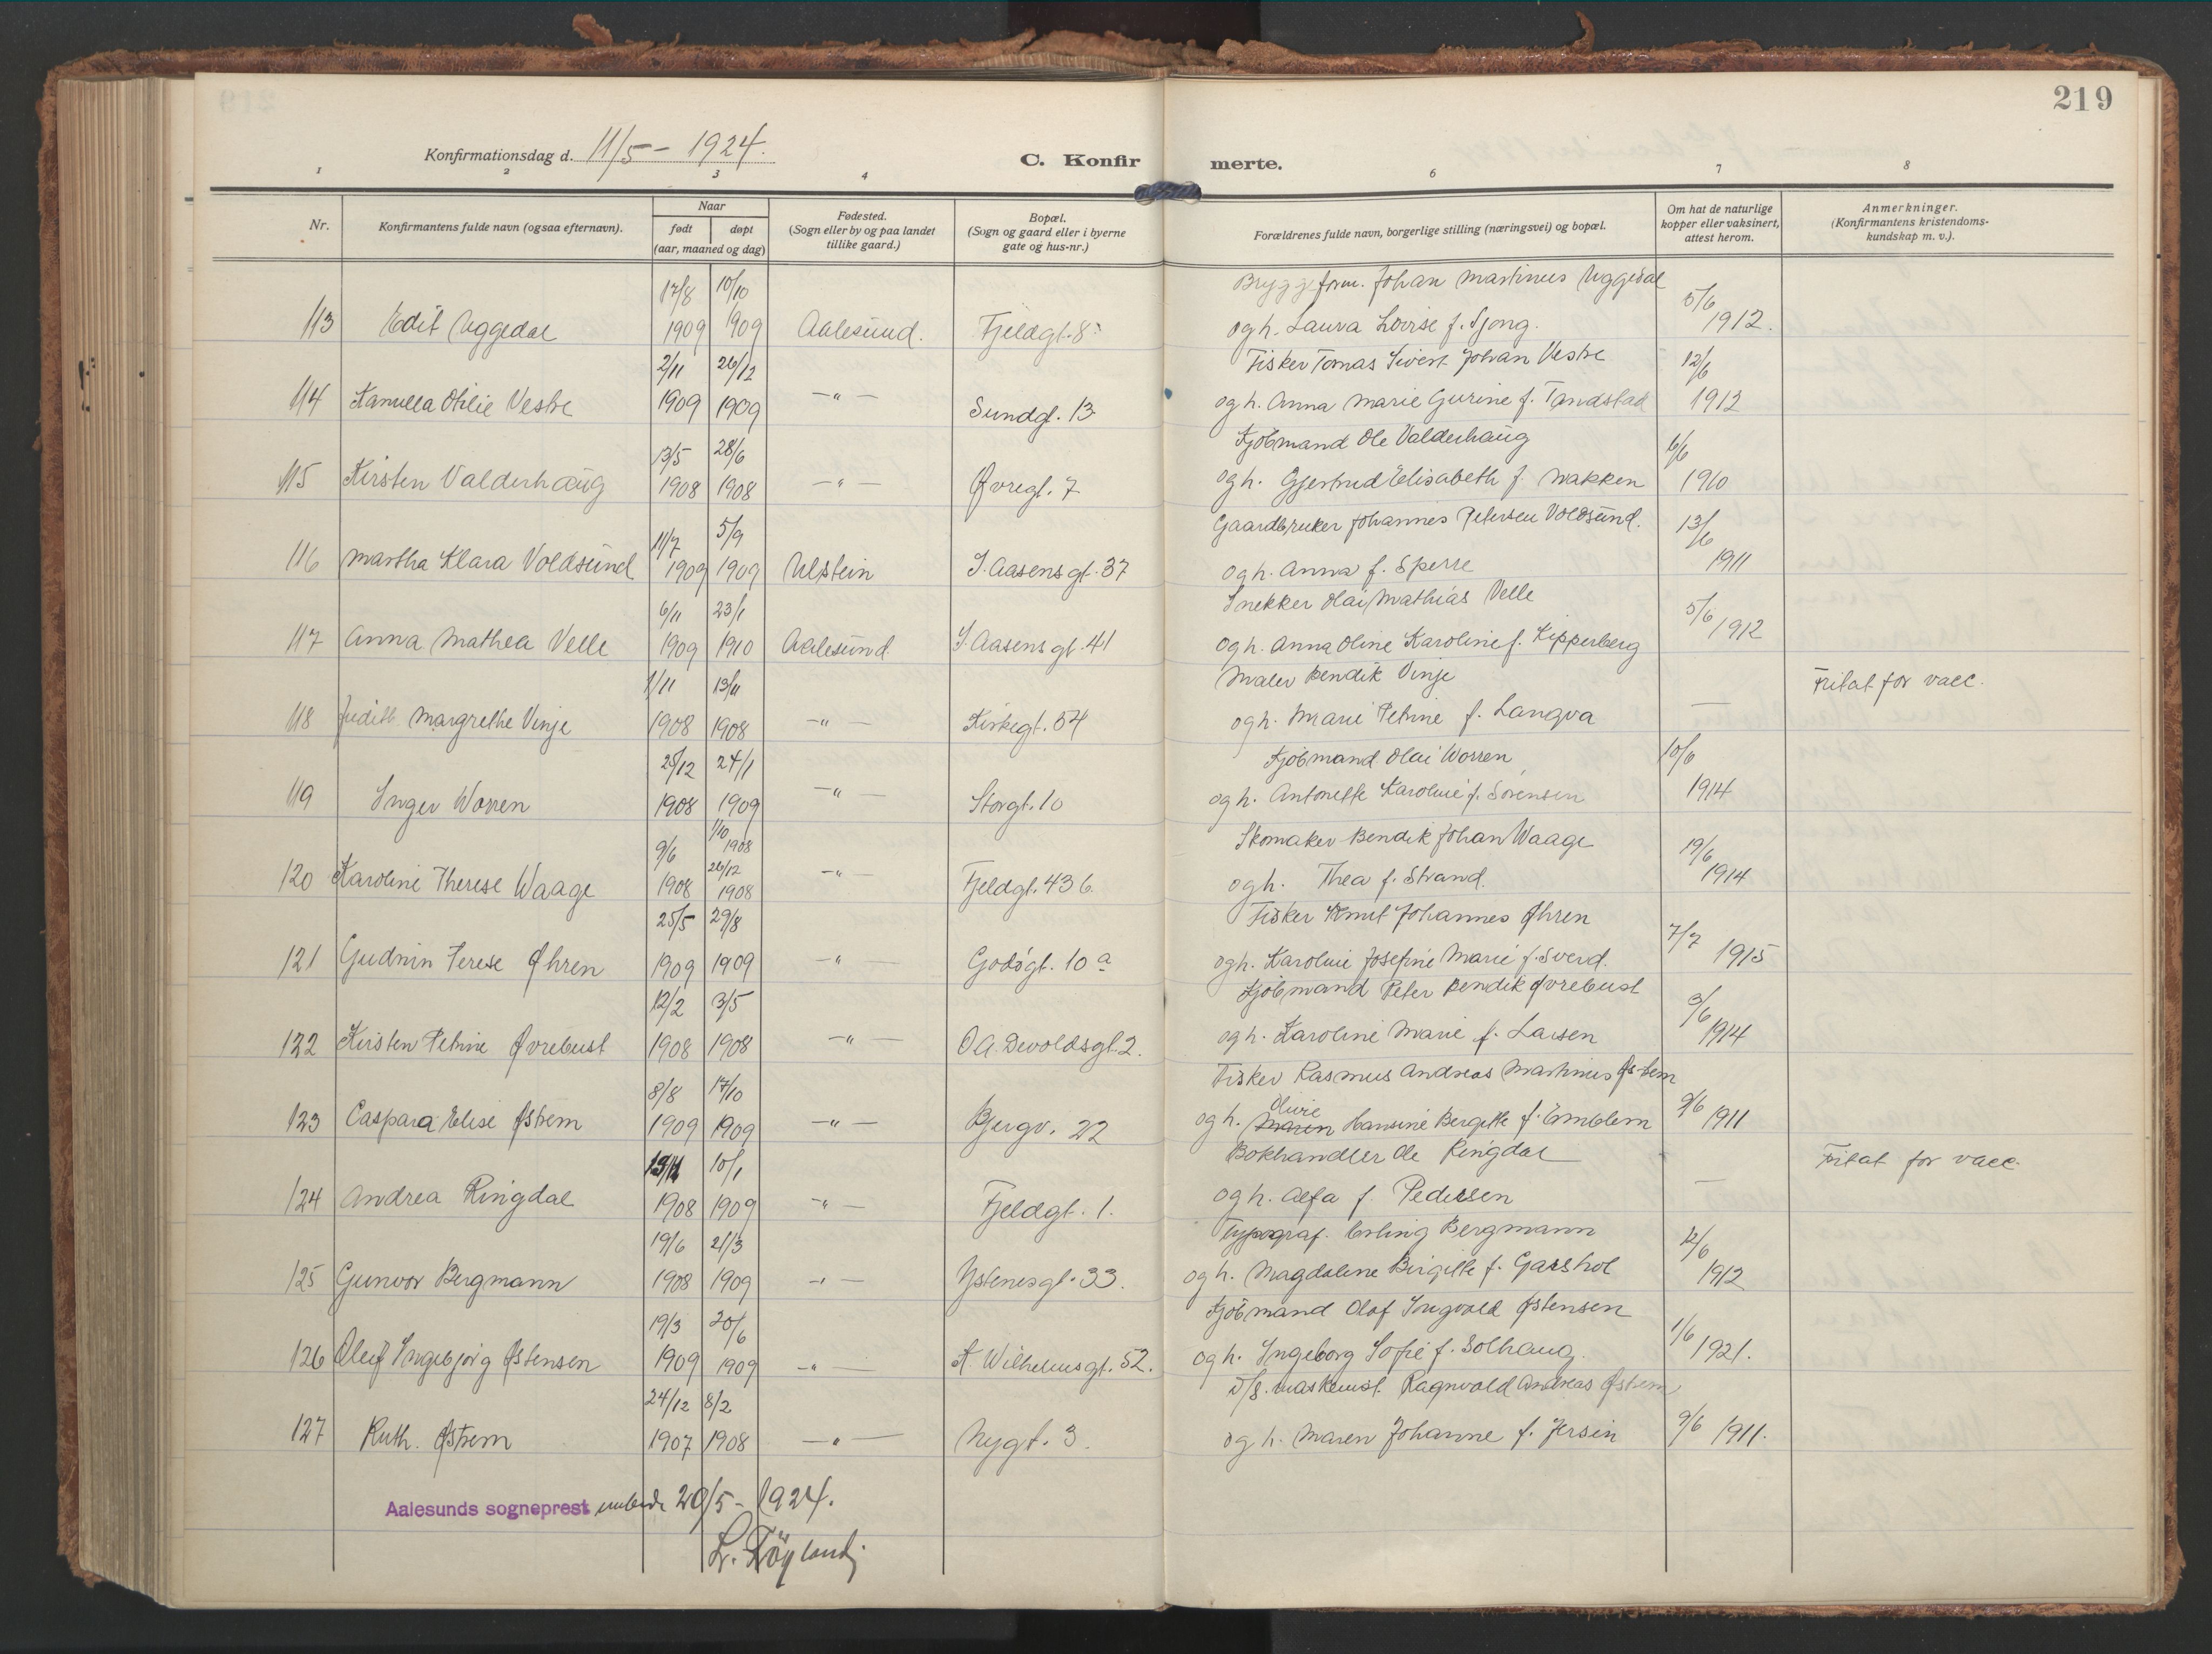 219
Konfirmationsdag d. 11/5 - 1924.
C. Konfirmerte.
1 2 3 4 6 7 8
Nr.
Konfirmantens fulde navn (ogsaa efternavn).
Naar
født døpt
(aar, maaned og dag)
Fødested.
(Sogn eller by og paa landet
tillike gaard.)
Bopæl.
(Sogn og gaard eller i byerne
gate og hus-nr.)
Forældrenes fulde navn, borgerlige stilling (næringsvei) og bopæl.
Om hat de naturlige
kopper eller vaksinert,
attest herom.
Anmerkninger.
(Konfirmantens kristendoms-
kundskap m. v.).
17/8 10/10 Bryggeform. Johan Martinus Uggedal 5/6
113 Edit Uggedal 1909 1909 Aalesund. Fjeldgt. 8 og h. Laura Lovise f. Sjong. 1912.
2/11 26/12 Fisker Tomas Sivert Johan Vestre 12/6
114 Kamilla Otilie Vestre 1909 1909 -"- Sundgt. 13 og h. Anna Marie Gurine f. Tandstad 1912
13/5 28/6 Kjøbmand Ole Valderhaug 6/6
115 Kirsten Valderhaug 1908 1908 -"- Øvregt. 7 og h. Gjertrud Elisabeth f. Nakken 1910
11/7 5/9 Gaardbruker Johannes Petersen Voldsund. 13/6
116 Martha Klara Voldsund 1909 1909 Ulstein I. Aasens gt. 37 og h. Anna f. Sperre 1911
6/11 23/1 Snekker Olai Mathias Velle 5/6
117 Anna Mathea Velle 1909 1910 Aalesund I. Aasens gt. 41 og h. Anna Oline Karoline f. Kipperberg 1912
1/11 13/11 Maler Bendik Vinje Fritat for vacc.
118 Judith Margrethe Vinje 1908 1908 -"- Kirkegt. 54 og h. Marie Petrine f. Langva —
25/12 24/1 Kjøbmand Olai Worren 10/6
119 Inger Worren 1908 1909 -"- Storgt. 10 og h. Antonette Karoline f. Sørensen 1914
9/6 1/10 1908 Skomaker Bendik Johan Waage 19/6
120 Karoline Therese Waage 1908 26/12 1908 -"- Fjeldgt. 43 b. og h. Thea f. Strand. 1914
25/5 29/8 Fisker Knut Johannes Øhren 7/7
121 Gudrun Terese Øhren 1909 1909 -"- Godøgt. 10 a og h. Karoline Josefine Marie f. Sverd. 1915
12/2 3/5 Kjøbmand Peter Bendik Øvrebust 3/6
122 Kirsten Petrine Øvrebust 1908 1908 -"- O A. Devoldsgt. 2. og h. Karoline Marie f. Larsen 1914
8/8 17/10 Fisker Rasmus Andreas Martinus Østrem
123 Caspara Elise Østrem 1909 1909 -"- Bjergv. 22 og h. Maren Olivie Hansine Bergitte f. Emblem 9/6 1911
10/1 Bokhandler Ole Ringdal Fritat for vacc.
124 Andrea Ringdal 1908 1909 -"- Fjeldgt. 1. og h. Alfa f. Pedersen —
19/6 21/3 Typograf. Erling Bergmann 12/6
125 Gunvor Bergmann 1908 1909 -"- Ystenesgt. 33. og h. Magdalene Birgitte f. Garshol 1912
19/3 20/6 Kjøbmand Olaf Ingvald Østensen 1/6
126 Oleif Ingebjørg Østensen 1909 1909 -"- K. Wilhelmsgt. 52. og h. Ingeborg Sofie f. Solhaug. 1921.
24/12 8/2 D/S. maskinist. Ragnvald Andreas Østrem
127 Ruth. Østrem 1907 1908 -"- Nygt. 3. og h. Maren Johanne f. Jersin 9/6 1911.
Aalesunds sogneprestembede 20/5 - 1924.